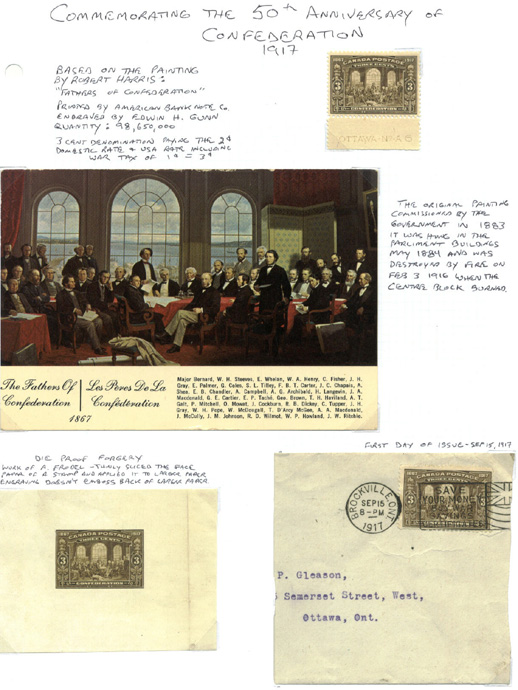 COMMEMORATING THE 50th ANNIVERSARY OF
CONFEDERATION
1917
BASED ON THE PAINTING
BY ROBERT HARRIS:
"FATHERS OF CONFEDERATION"
PRINTED BY AMERICAN BANK NOTE Co.
ENGRAVED BY EDWIN H. GUNN
QUANTITY: 98,650,000
3 CENT DENOMINATION PAYING THE 2¢
DOMESTIC RATE & USA RATE INCLUDING
WAR TAX OF 1¢ = 3¢
1867 CANADA POSTAGE 1917
THREE CENTS
3 3
CONFEDERATION
OTTAWA - No - A 6
THE ORIGINAL PAINTING
COMMISSIONED BY THE
GOVERNMENT IN 1883
IT WAS HUNG IN THE
PARLIMENT BUILDINGS
MAY 1884 AND WAS
DESTROYED BY FIRE ON
FEB 3 1916 WHEN THE
CENTRE BLOCK BURNED.
The Fathers Of
Confederation
Les Peres De La
Confédération
1867
Major Bernard, W. H. Steeves, E. Whelan, W. A. Henry, C. Fisher, J. H.
Gray, E. Palmer, G. Coles, S. L. Tilley, F. B. T. Carter, J. C. Chapais, A.
Shea, E. B. Chandler, A. Campbell, A. G. Archibald, H. Langevin, J. A.
Macdonald, G. E. Cartier, E. P. Taché, Geo. Brown, T. H. Haviland, A. T.
Galt, P. Mitchell, O. Mowat, J. Cockburn, R. B. Dickey, C. Tupper, J. H.
Gray, W. H. Pope, W. McDougall, T. D'Arcy McGee, A. A. Macdonald,
J. McCully, J. M. Johnson, R. D. Wilmot, W. P. Howland, J. W. Ritchie.
DIE PROOF FORGERY
WORK OF A. FRODEL - THINLY SLICED THE BACK
PAPER OF A STAMP AND APPLIED IT TO LARGER PAPER
ENGRAVING DOESN'T EMBOSS BACK OF LARGER PAPER
1867 CANADA POSTAGE 1917
THREE CENTS
3 3
CONFEDERATION
FIRST DAY OF ISSUE - SEP 15, 1917
BROCKVILLE, ONT.
SEP 15
8-PM
1917
SAVE
YOUR MONEY
P. Gleason,
Somerset Street, West,
Ottawa, Ont.